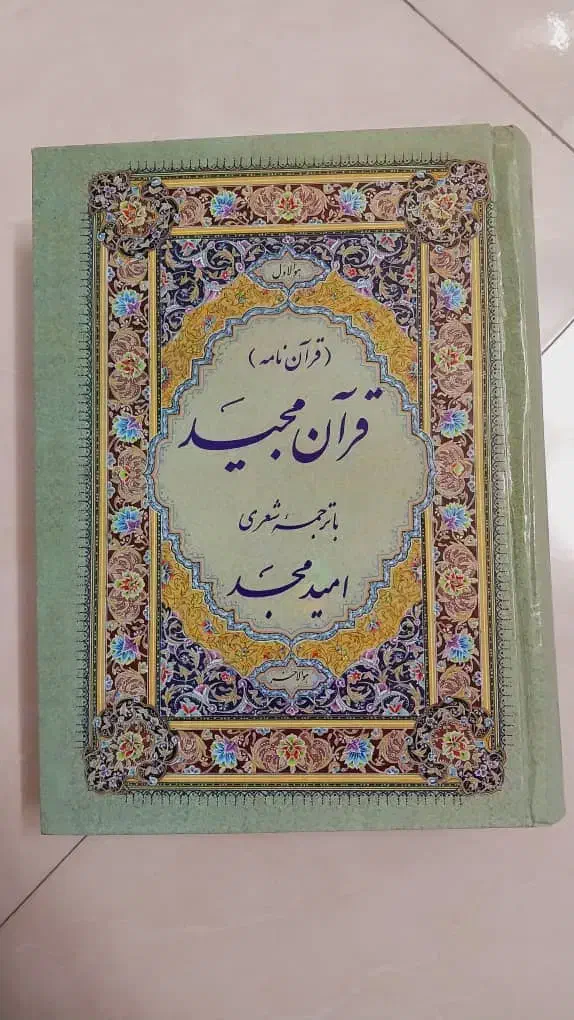 هو الاول
(قرآن نامه)
قرآن مجید
با ترجمهٔ شعری
امید مجد
هو الاخر